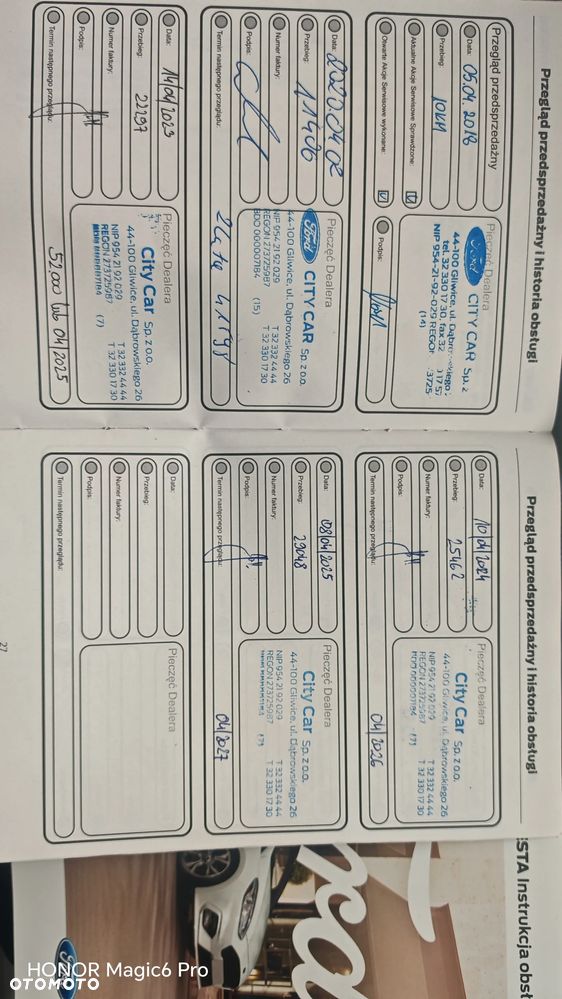 Przegląd przedsprzedażny i historia obsługi
Przegląd przedsprzedażny
Data: 05.04.2018
Przebieg: 10km
Aktualne Akcje Serwisowe Sprawdzone:
Otwarte Akcje Serwisowe wykonane:
Pieczęć Dealera
Ford CITY CAR Sp. z
44-100 Gliwice, ul. Dąbrowskiego
tel. 32 330 17 30, fax 32
NIP 954-21-92-029 REGON
(14)
Podpis:
Data: 2020 04 02
Przebieg: 11406
Numer faktury:
Podpis:
Termin następnego przeglądu:
Pieczęć Dealera
Ford CITY CAR Sp. z o.o.
44-100 Gliwice, ul. Dąbrowskiego 26
NIP 954 21 92 029 T 32 332 44 44
REGON 273725987 T 32 330 17 30
BDO 000007184 (15)
Data: 14/04/2023
Przebieg: 22297
Numer faktury:
Podpis:
Termin następnego przeglądu: 52.000 lub 04/2025
Pieczęć Dealera
City Car Sp. z o.o.
44-100 Gliwice, ul. Dąbrowskiego 26
NIP 954 21 92 029 T 32 332 44 44
REGON 273725987 T 32 330 17 30
(7)
Przegląd przedsprzedażny i historia obsługi
Data: 10/04/2024
Przebieg: 25462
Numer faktury:
Podpis:
Termin następnego przeglądu: 04/2026
Pieczęć Dealera
City Car Sp. z o.o.
44-100 Gliwice, ul. Dąbrowskiego 26
NIP 954 21 92 029 T 32 332 44 44
REGON 273725987 T 32 330 17 30
BDO 000007184 (7)
Data: 08/04/2025
Przebieg: 29048
Numer faktury:
Podpis:
Termin następnego przeglądu: 04/2027
Pieczęć Dealera
City Car Sp. z o.o.
44-100 Gliwice, ul. Dąbrowskiego 26
NIP 954 21 92 029 T 32 332 44 44
REGON 273725987 T 32 330 17 30
(7)
Data:
Przebieg:
Numer faktury:
Podpis:
Termin następnego przeglądu:
Pieczęć Dealera
27
ESTA Instrukcja obsł
HONOR Magic6 Pro
OTOMOTO